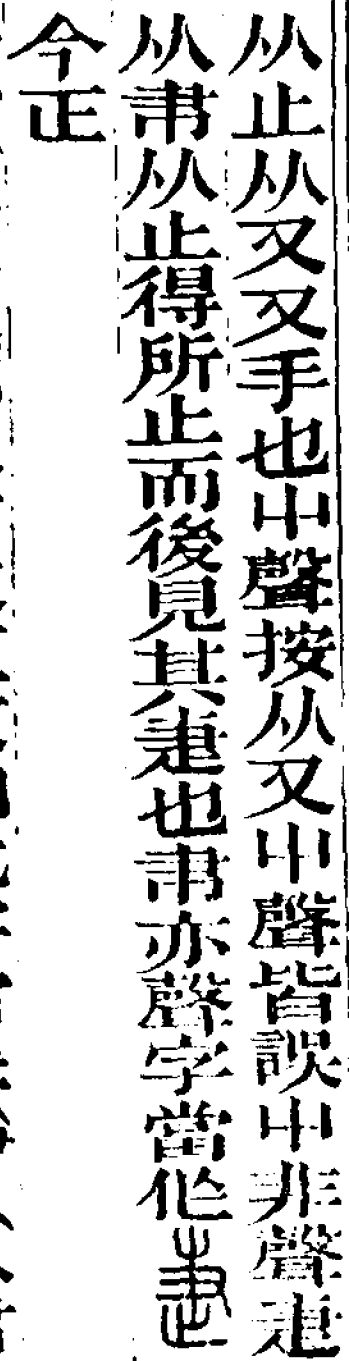 从止从又又手也屮聲按从又屮聲皆誤屮非聲疌
从帇从止得所止而後見其疌也帇亦聲字當作疌
今正